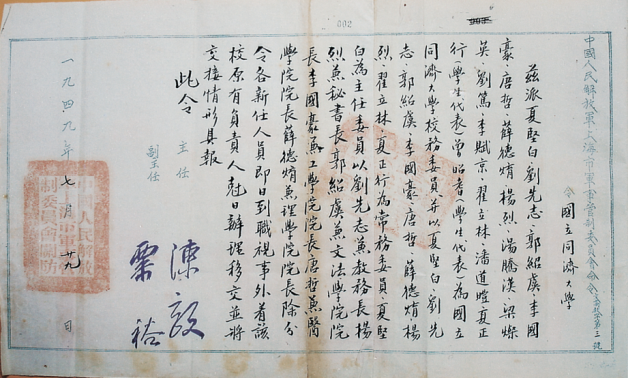 002
中國人民解放軍上海市軍事管制委員會命令
令 國立同濟大學
茲派夏堅白劉先志郭紹虞李國
豪唐哲薛德焴楊烈湯騰漢梁燦
英劉篤李賦京翟立林潘道皚夏正
行(學生代表)曾昭耆(學生代表)為國立
同濟大學校務委員並以夏堅白劉先
志郭紹虞李國豪唐哲薛德焴楊
烈翟立林夏正行為常務委員夏堅
白為主任委員以劉先志兼教務長楊
烈兼秘書長郭紹虞兼文法學院院
長李國豪兼工學院院長唐哲兼醫
學院院長薛德焴兼理學院院長除分
令各新任人員即日到職視事外着該
校原有負責人尅日辦理移交並將
交接情形具報
此令
主任 陳毅
副主任 粟裕
一九四九年七月廿九日